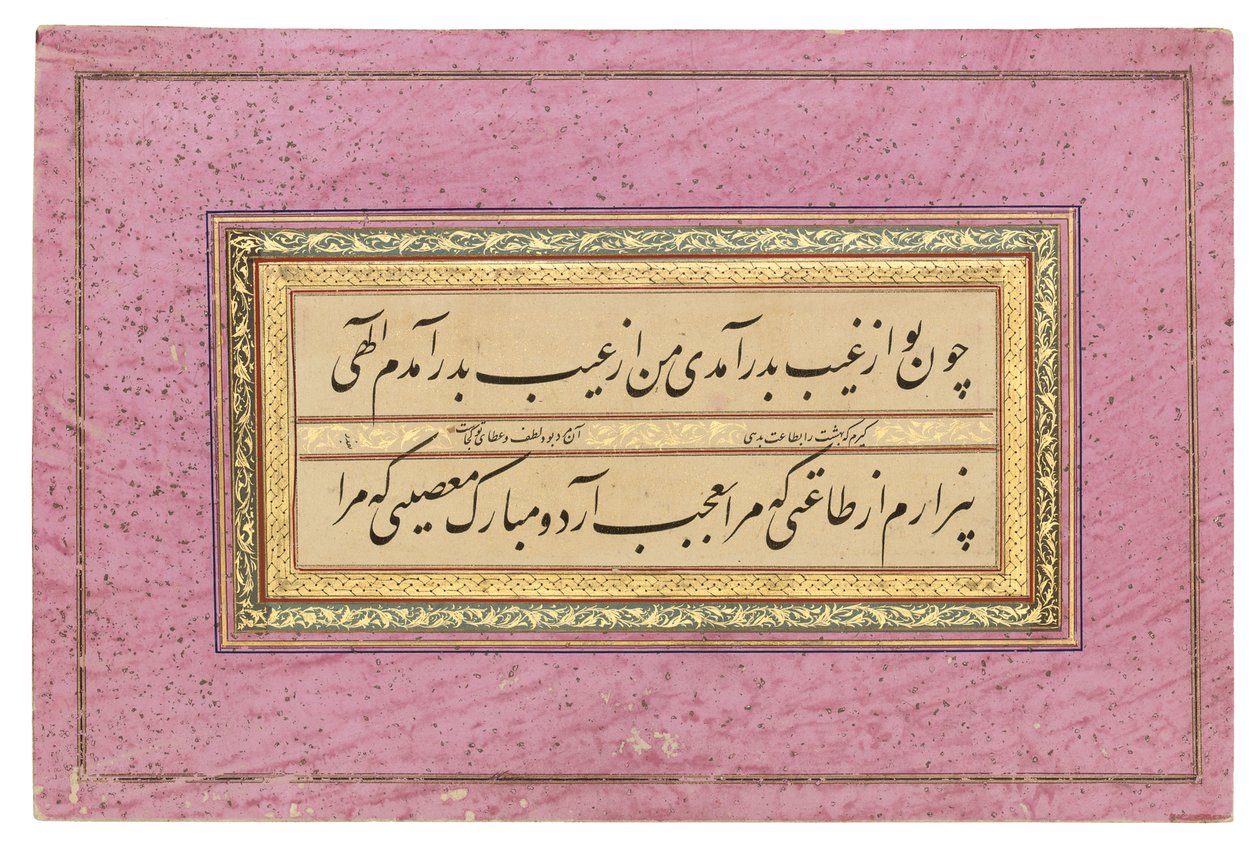 چون تو از غیب بدر آمدی من از غیب بدر آمدم الهی
گیرم که بهشت را بطاعت بدهی آن مزد بود لطف و عطای تو کجاست
بیزارم از طاعتی که مرا بعجب آرد و مبارک معصیتی که مرا